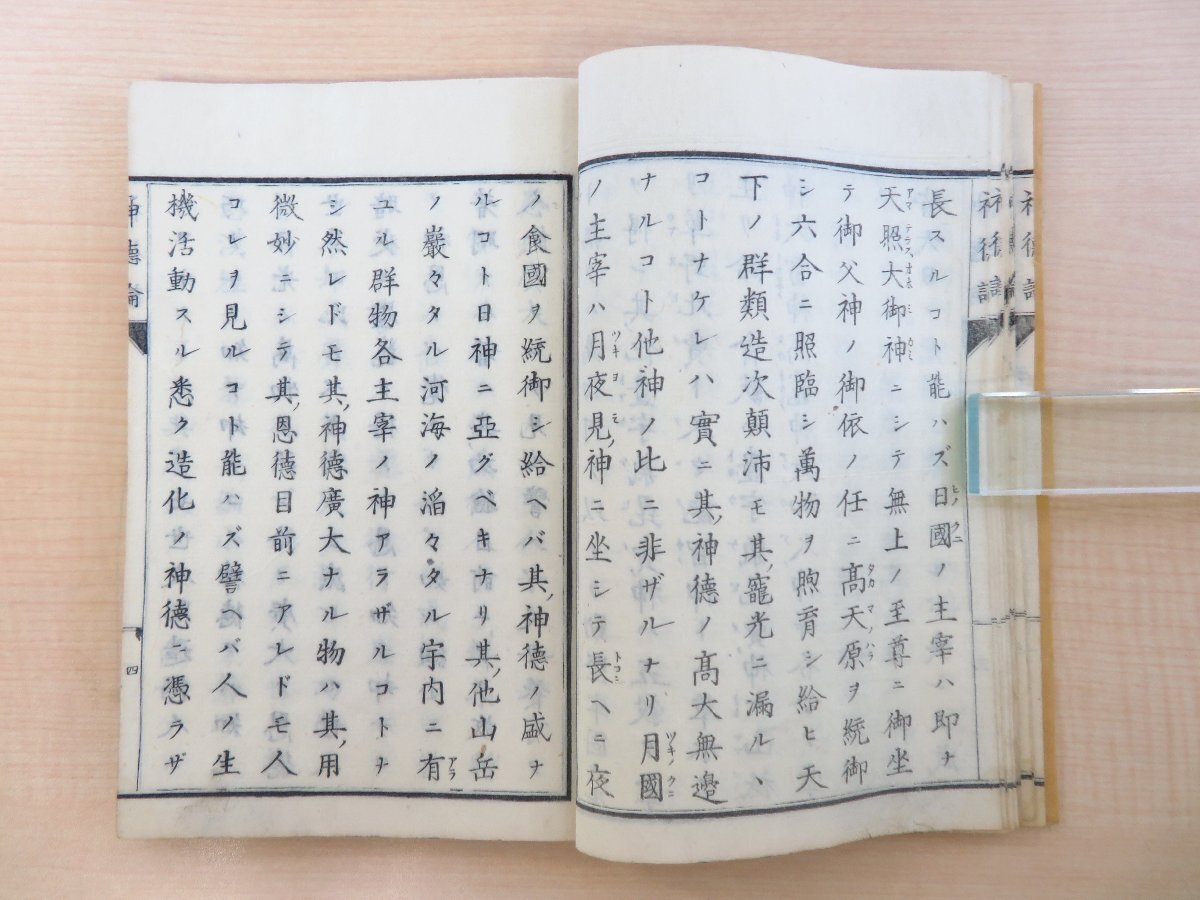 長スルコト能ハズ日國ノ主宰ハ即チ
天照大御神ニシテ無上ノ至尊ニ御坐
テ御父神ノ御依ノ任ニ髙天原ヲ統御
シ六合ニ照臨シ萬物ヲ煦育シ給ヒ天
下ノ群類造次顛沛モ其ノ寵光ニ漏ルヽ
コトナケレハ實ニ其ノ神德ノ髙大無邊
ナルコト他神ノ比ニ非ザルナリ月國
ノ主宰ハ月夜見ノ神ニ坐シテ長ヘニ夜
ノ食國ヲ統御シ給ヘバ其ノ神德ノ盛ナ
ルコト日神ニ亞グベキナリ其ノ他山岳
ノ巖々タル河海ノ滔々タル宇内ニ有
ユル群物各主宰ノ神アラザルコトナ
シ然レドモ其ノ神德廣大ナル物ハ其ノ用
微妙ニシテ其ノ恩德目前ニアレドモ人
コレヲ見ルコト能ハズ譬ヘバ人ノ生
機活動スル悉ク造化ノ神德ニ憑ラザ
神德論
四